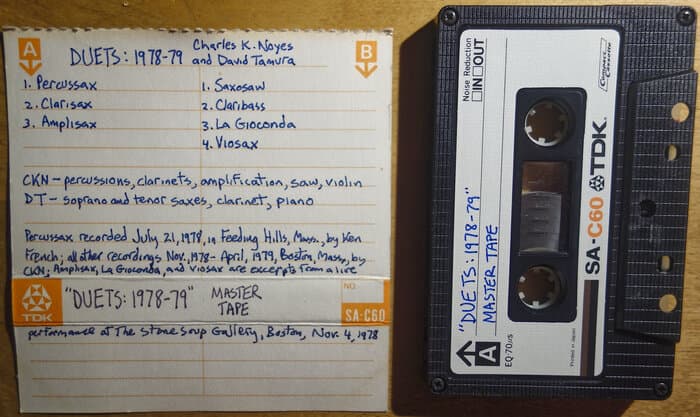 A
B
DUETS: 1978-79 Charles K. Noyes
and David Tamura
1. Percussax
2. Clarisax
3. Amplisax
1. Saxosaw
2. Claribass
3. La Gioconda
4. Viosax
CKN - percussions, clarinets, amplification, saw, violin
DT - soprano and tenor saxes, clarinet, piano
Percussax recorded July 21, 1978, in Feeding Hills, Mass., by Ken
French; all other recordings Nov. 1978 - April, 1979, Boston, Mass., by
CKN; Amplisax, La Gioconda, and Viosax are excerpts from a live
TDK
"DUETS: 1978-79" MASTER
TAPE
NO.
SA-C60
performance at The Stone Soup Gallery, Boston, Nov. 4, 1978
Noise Reduction
IN OUT
Compact Cassette
"DUETS: 1978-79"
MASTER TAPE
SA-C60 TDK
A
EQ-70µs
Printed in Japan